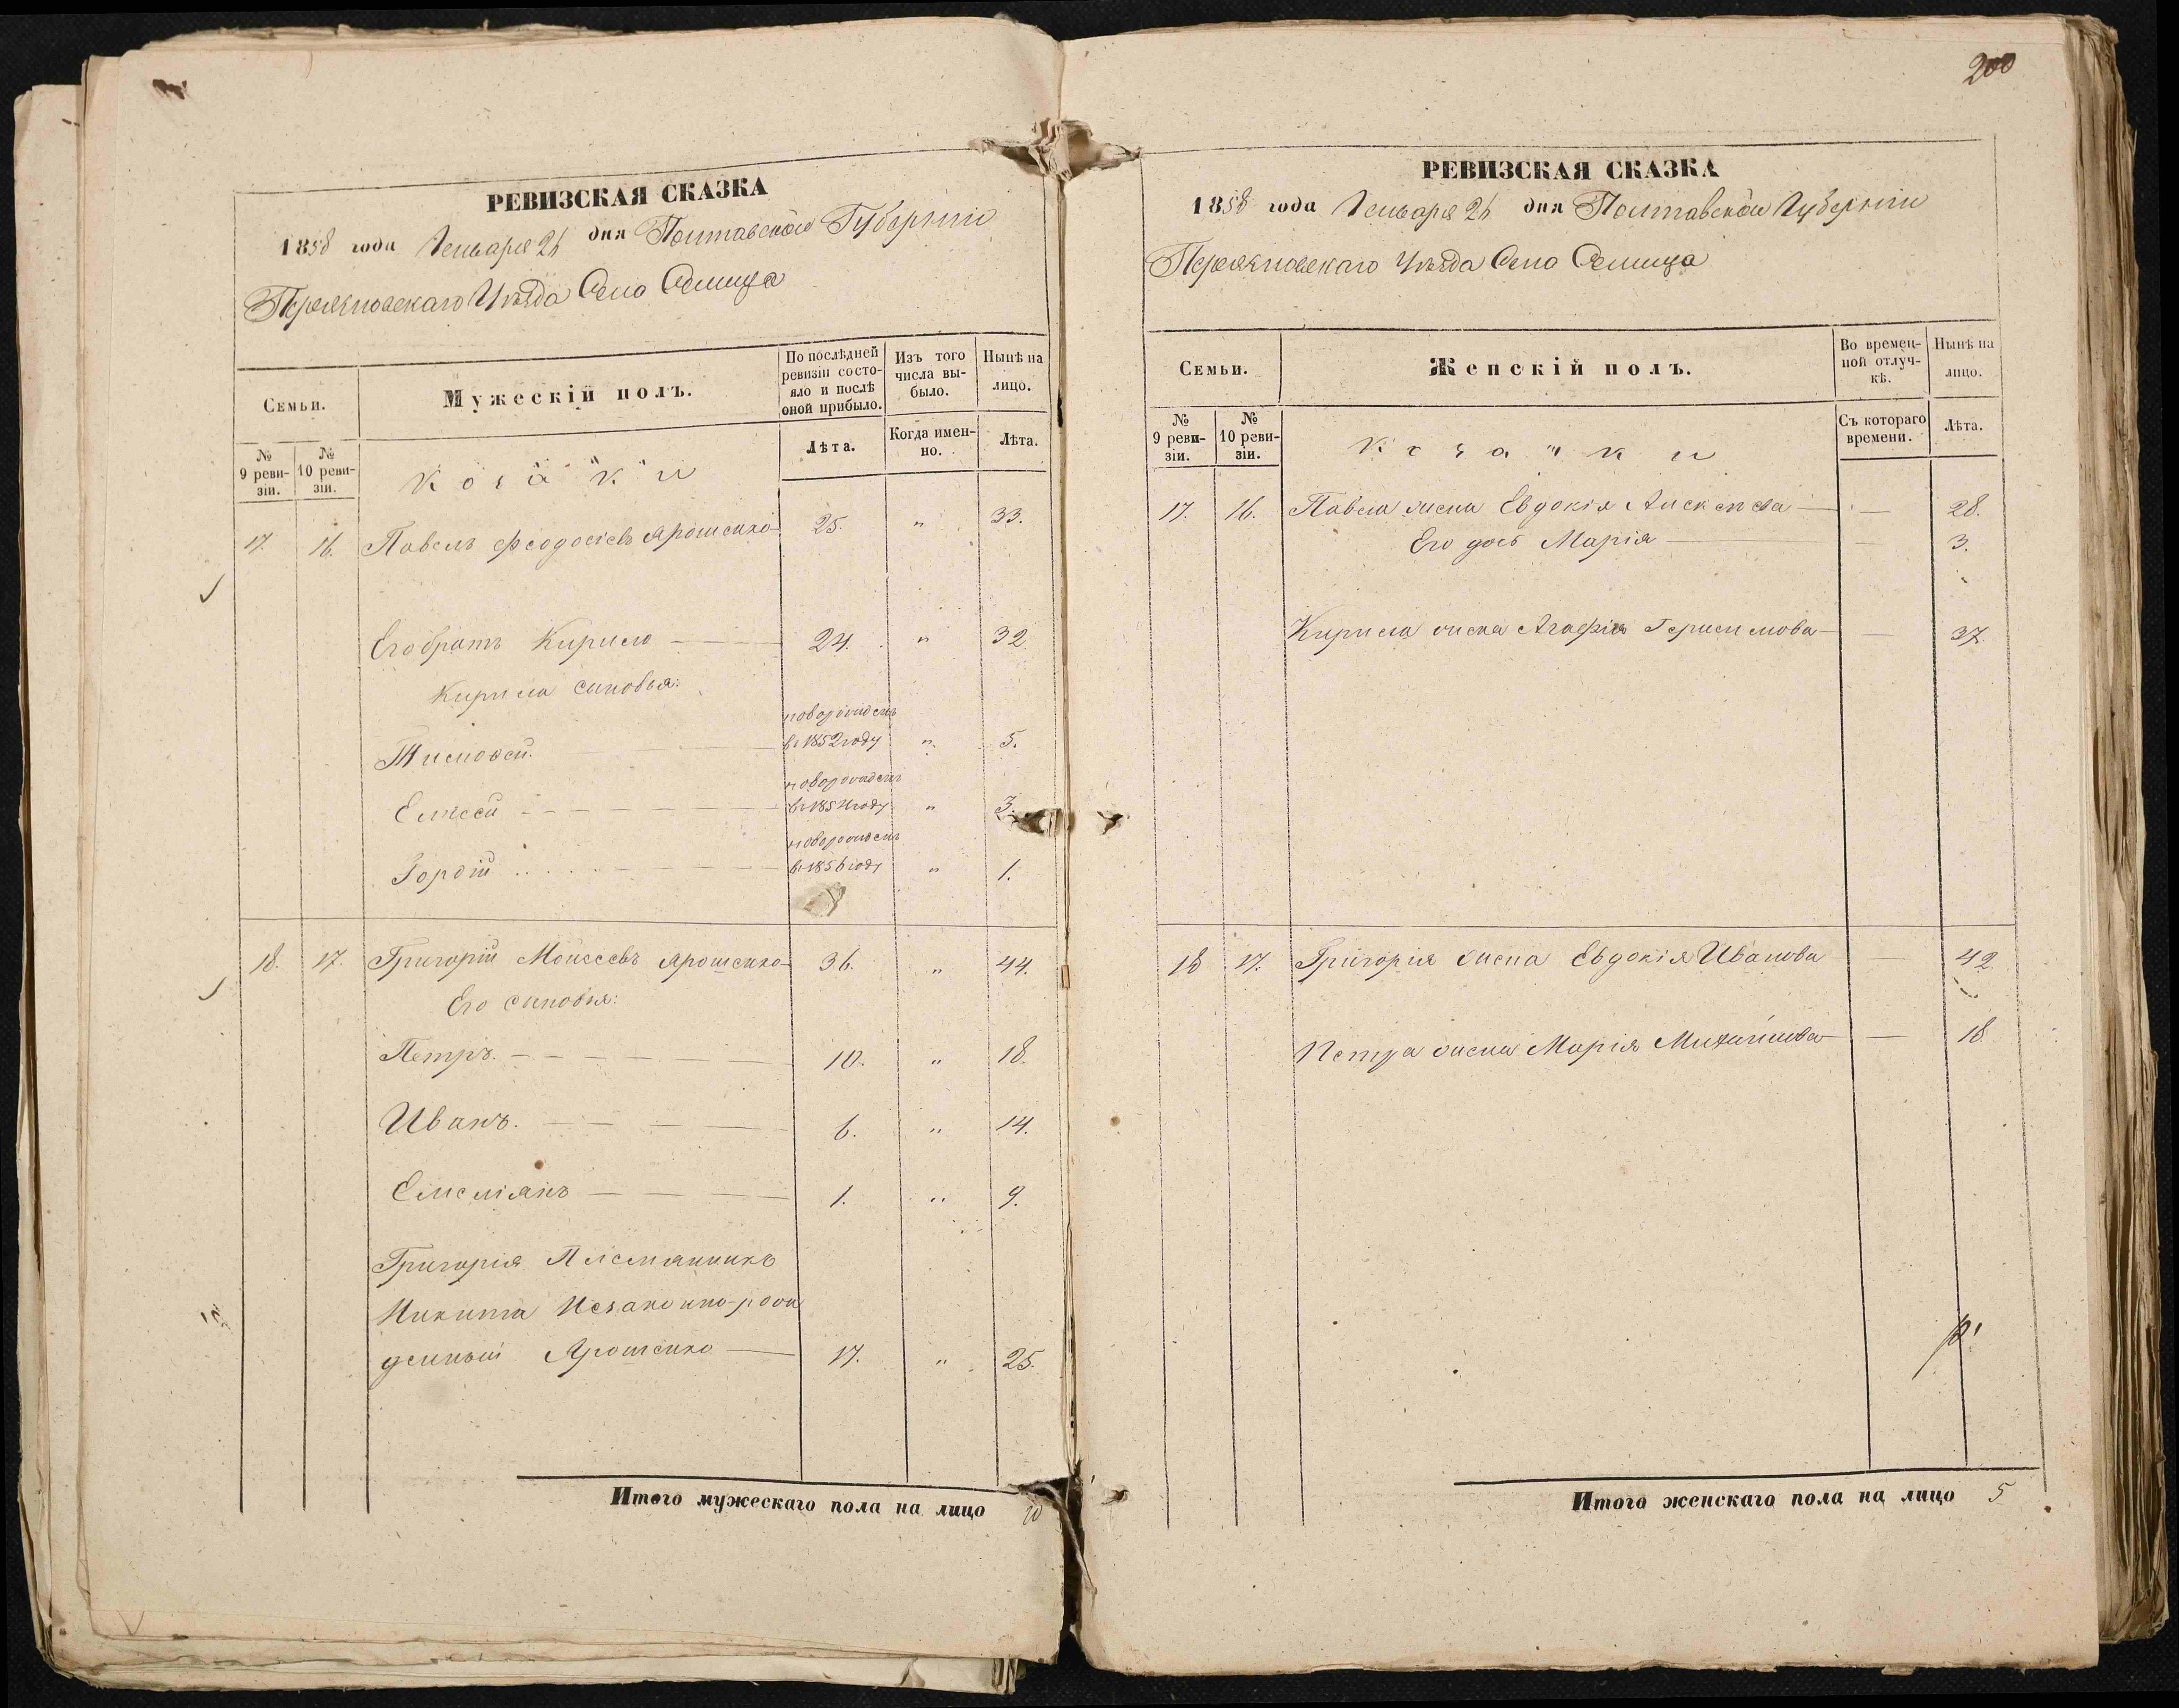 РЕВИЗСКАЯ СКАЗКА
1858 года Генваря 26 дня Полтавской Губерніи
Переяславскаго Уѣзда Село Селище
Семьи.
Мужескій полъ.
По послѣдней ревизіи состояло и послѣ оной прибыло.
Изъ того числа выбыло.
Нынѣ на лицо.
№ 9 ревизіи.
№ 10 ревизіи.
Козаки
Лѣта.
Когда именно.
Лѣта.
17. 16. Павелъ Феодосіевъ Ярошенко 25. " 33.
Его братъ Кирило 24. " 32
Кирила сыновья:
новорожденъ
Тимофей. въ 1852 году " 5.
новорожденъ
Елисей въ 1854 году " 3.
новорожденъ
Гордій въ 1856 году " 1.
18. 17. Григорій Моисеевъ Ярошенко 36. " 44.
Его сыновья:
Петръ. 10. " 18.
Иванъ. 6. " 14.
Емеліянъ 1. " 9.
Григорія Племянникъ
Никита Незаконно-рож
денный Ярошенко 17. " 25.
Итого мужескаго пола на лицо 10
200
РЕВИЗСКАЯ СКАЗКА
1858 года Генваря 26 дня Полтавской Губерніи
Переяславскаго Уѣзда Село Селище
Семьи.
Женскій полъ.
Во временной отлучкѣ.
Нынѣ на лицо.
№ 9 ревизіи.
№ 10 ревизіи.
Козачки
Съ котораго времени.
Лѣта.
17. 16. Павла жена Евдокія 28.
Его дочь Марія 3.
Кирила жена Агафія Герасимова 37.
18 17. Григорія жена Евдокія Иванова 42
Петра жена Марія Михайлова 18
Итого женскаго пола на лицо 5